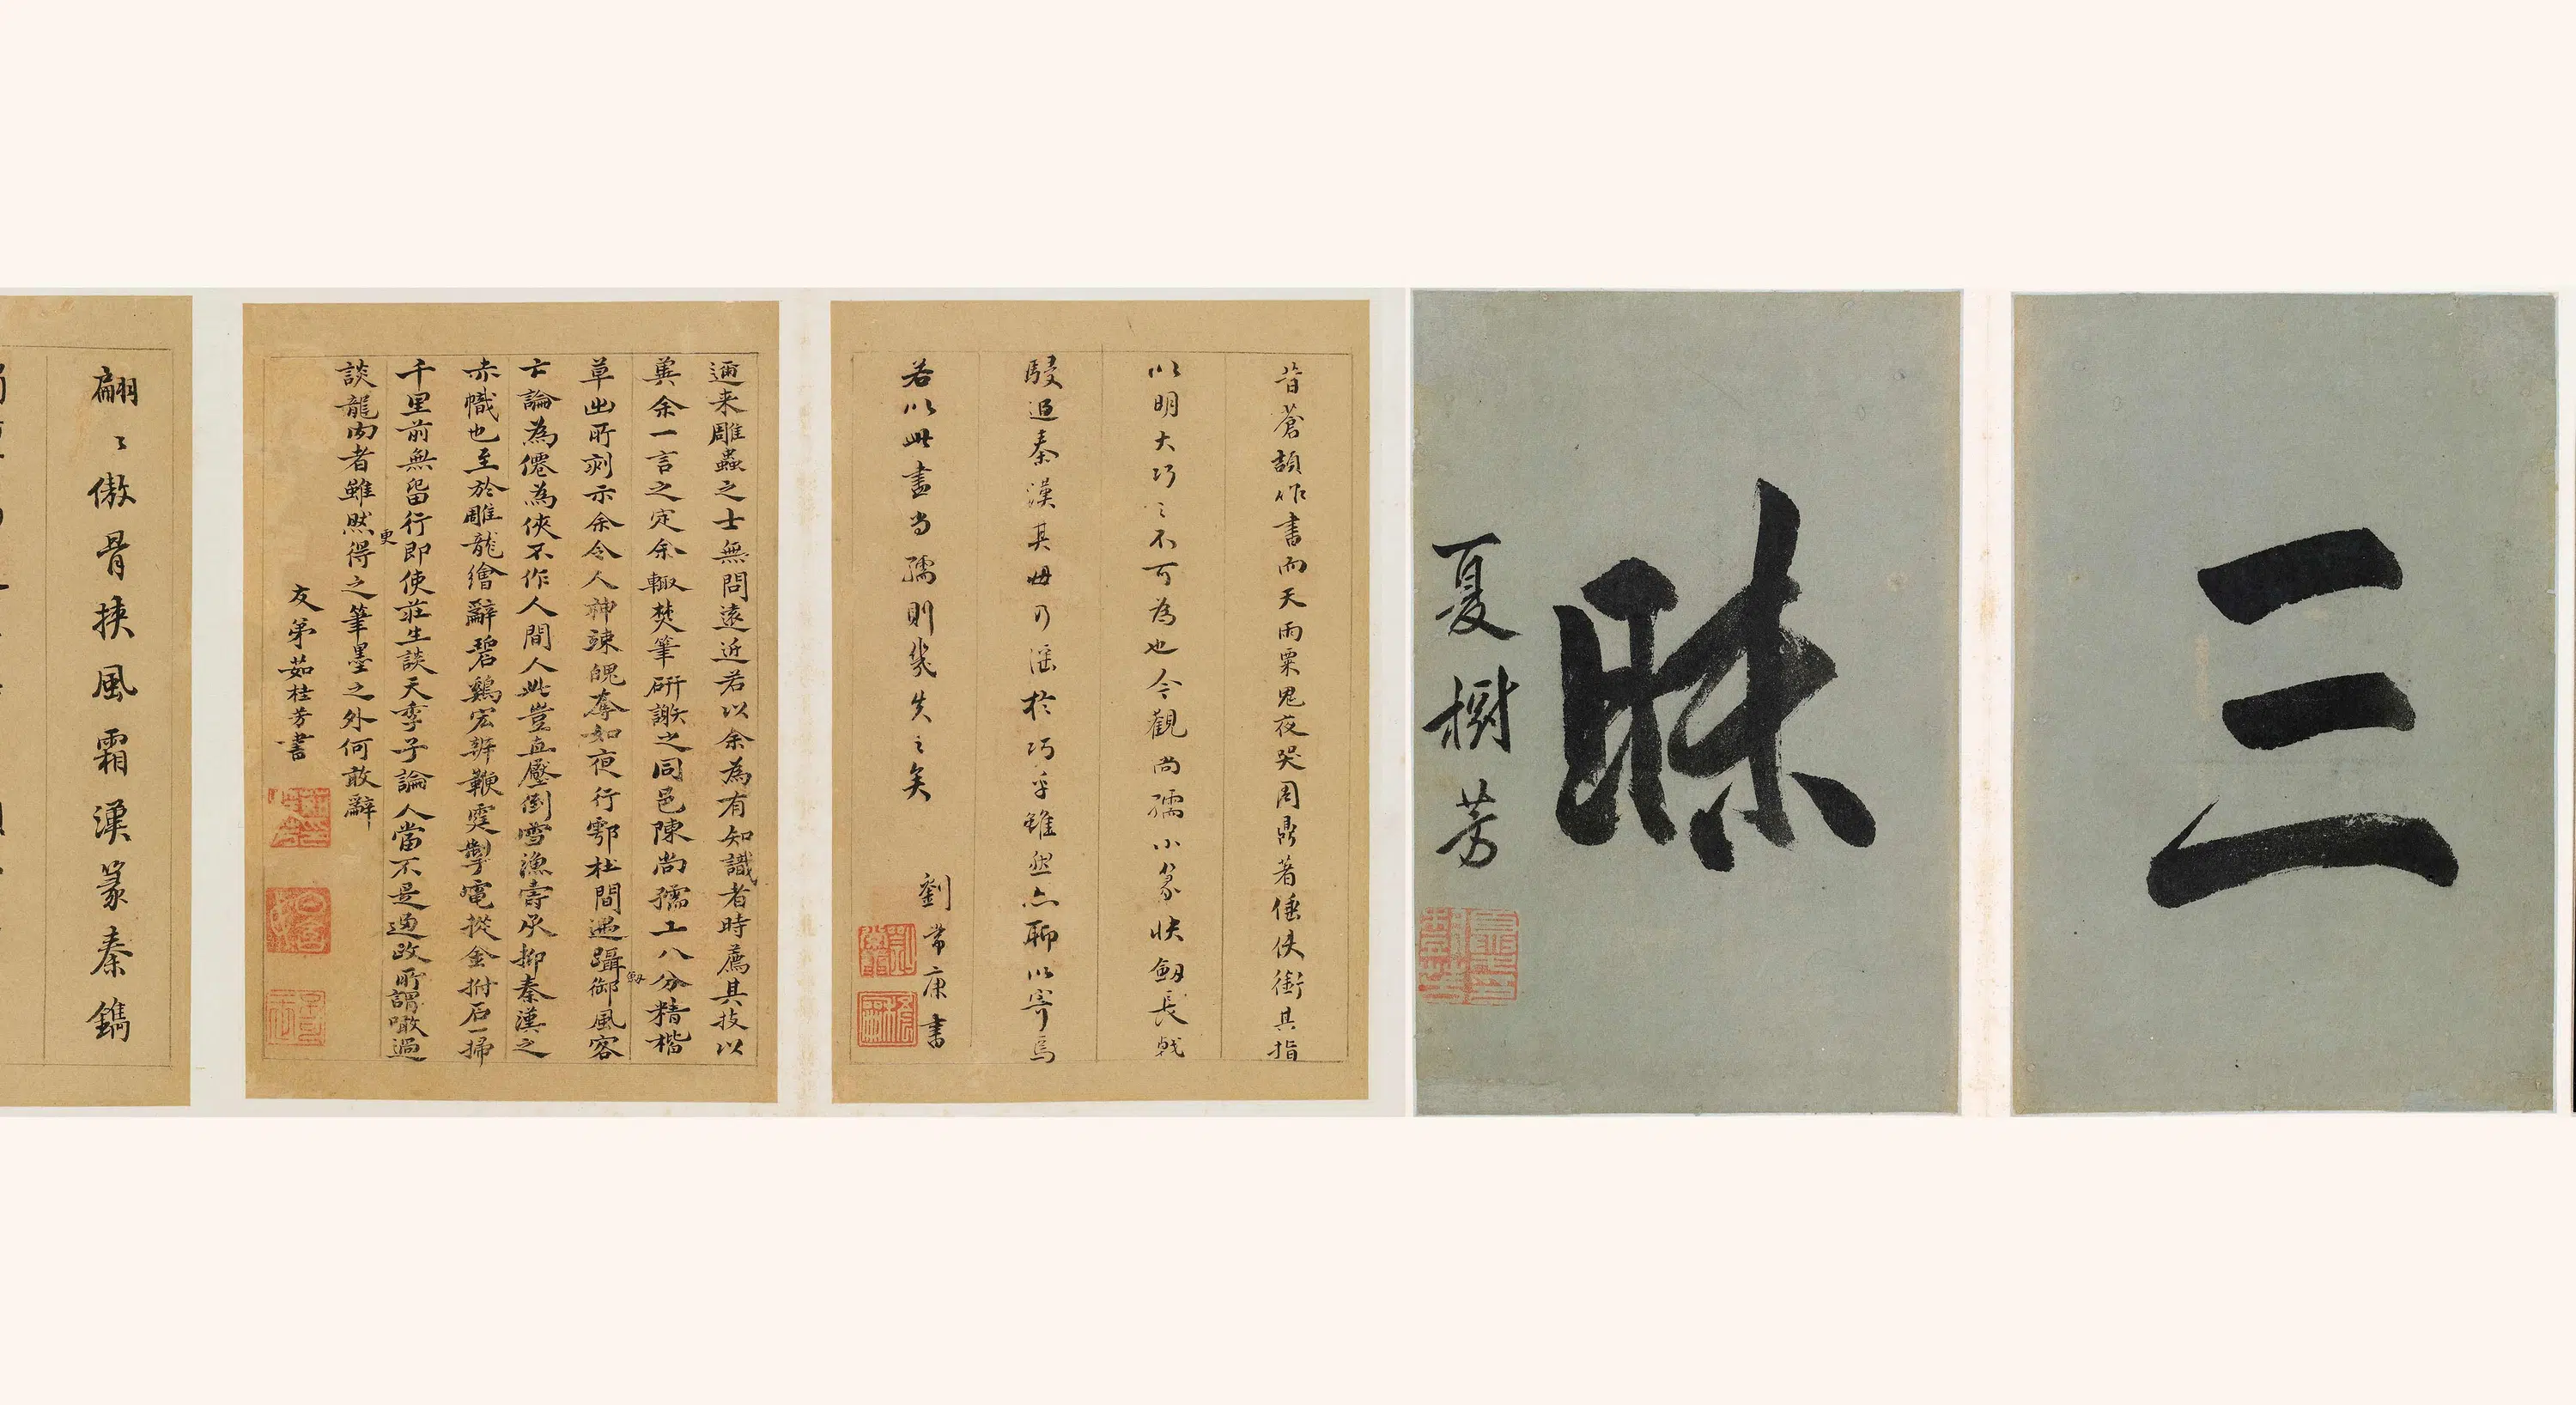 三
昧
夏樹芳
昔蒼頡作書而天雨粟鬼夜哭周鼎著倕俠銜其指
以明大巧之不可為也今觀尚孺小篆快劔長戟
駸追秦漢其毋乃滛於巧乎雖然亡聊以寄焉
若以此畫尚孺則幾失之矣
劉常康書
邇来雕蟲之士無問遠近若以余為有知識者時薦其技以
冀余一言之定余輙焚筆研謝之同邑陳尚孺工八分精楷
草出所刻示余令人神竦魄奪如夜行鄠杜間遇躡劔御風客
亡論為僊為俠不作人間人此豈直壓倒雪漁壽承抑秦漢之
赤幟也至於雕龍繪辭碧鷄宏辨鞭霆掣電摐金拊石一掃
千里前無留行即使莊生談天季子論人當不是過改所謂噉過
談龍肉者雖然更得之筆墨之外何敢辭
友弟茹桂芳書
翩〻傲骨挾風霜漢篆秦鐫